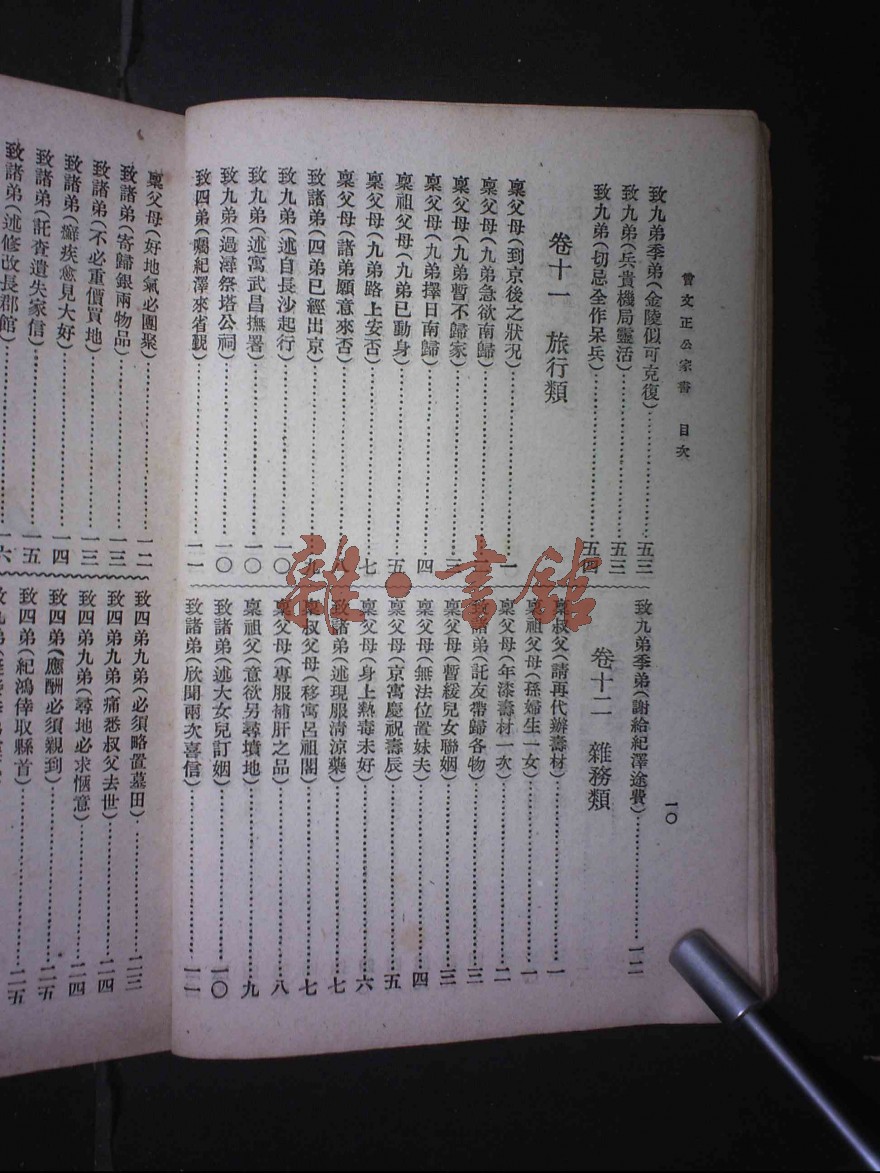 曾文正公家書　目次
一〇
致九弟季弟(金陵似可克復)……五三
致九弟(兵貴機局靈活)……五三
致九弟(切忌全作呆兵)……五四
卷十一　旅行類
稟父母(到京後之狀況)……一
稟父母(九弟急欲南歸)……二
稟父母(九弟暫不歸家)……三
稟父母(九弟擇日南歸)……四
稟祖父母(九弟已動身)……五
稟父母(九弟路上安否)……七
稟父母(諸弟願意來否)……八
致諸弟(四弟已經出京)……九
致九弟(述自長沙起行)……一〇
致九弟(述寓武昌撫署)……一〇
致九弟(過潯祭塔公祠)……一〇
致四弟(囑紀澤來省覲)……一一
致九弟季弟(謝給紀澤途費)……一二
卷十二　雜務類
稟叔父(請再代辦壽材)……一
稟祖父母(孫婦生一女)……一
稟父母(年漆壽材一次)……二
致諸弟(託友帶歸各物)……三
稟父母(暫緩兒女聯姻)……三
稟父母(無法位置妹夫)……四
稟父母(京寓慶祝壽辰)……五
稟父母(身上熱毒未好)……六
致諸弟(述現服清涼藥)……七
稟叔父母(移寓呂祖閣)……七
稟父母(專服補肝之品)……八
稟祖父(意欲另尋墳地)……九
致諸弟(述大女兒訂姻)……一〇
致諸弟(欣聞兩次喜信)……一一
稟父母(好地氣必團聚)……一二
致諸弟(寄歸銀兩物品)……一三
致諸弟(不必重價買地)……一三
致諸弟(癬疾愈見大好)……一四
致諸弟(託查遺失家信)……一五
致諸弟(述修改長郡館)……一六
致四弟九弟(必須略置墓田)……二三
致四弟九弟(痛悉叔父去世)……二四
致四弟九弟(尋地必求愜意)……二四
致四弟(應酬必須親到)……二五
致四弟(紀鴻倖取縣首)……二五
雜·書館